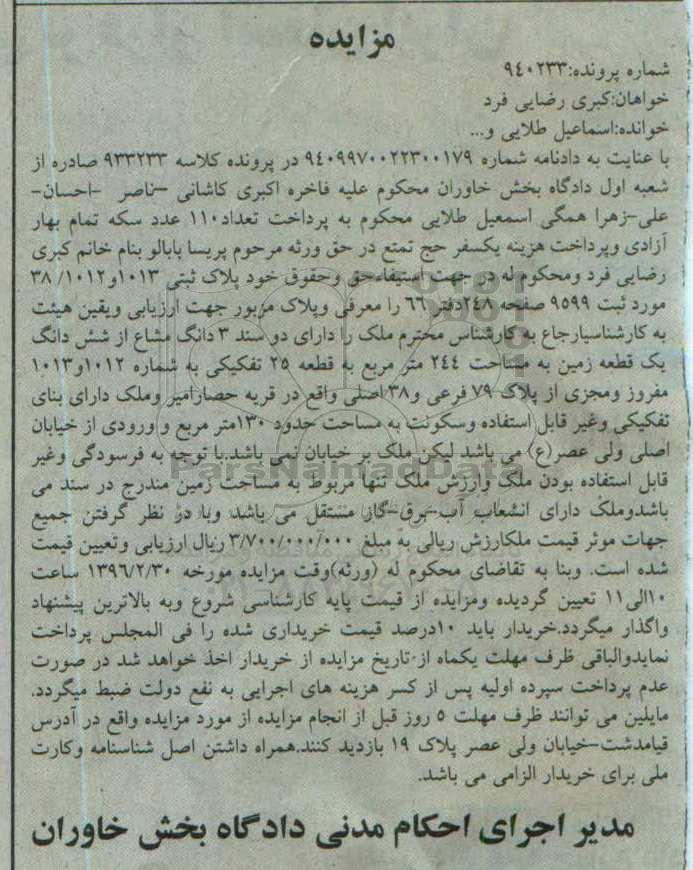 مزایده
شماره پرونده:۹٤۰۲۳۳
خواهان:کبری رضایی فرد
خوانده:اسماعیل طلایی و...
با عنایت به دادنامه شماره ۹٤۰۹۹۷۰۰۲۲۳۰۰۱۷۹ در پرونده کلاسه ۹۳۳۲۳۳ صادره از
شعبه اول دادگاه بخش خاوران محکوم علیه فاخره اکبری کاشانی –ناصر –احسان-
علی-زهرا همگی اسمعیل طلایی محکوم به پرداخت تعداد۱۱۰ عدد سکه تمام بهار
آزادی وپرداخت هزینه یکسفر حج تمتع در حق ورثه مرحوم پریسا بابالو بنام خانم کبری
رضایی فرد ومحکوم له در جهت استیفاء حق وحقوق خود پلاک ثبتی ۱۰۱۳و۱۰۱۲/ ۳۸
مورد ثبت ۹۵۹۹ صفحه ۲٤۸دفتر ٦٦ را معرفی وپلاک مزبور جهت ارزیابی ویقین هیئت
به کارشناسیارجاع به کارشناس محترم ملک را دارای دو سند ۳ دانگ مشاع از شش دانگ
یک قطعه زمین به مساحت ۲٤٤ متر مربع به قطعه ۲۵ تفکیکی به شماره ۱۰۱۲و۱۰۱۳
مفروز ومجزی از پلاک ۷۹ فرعی و۳۸ اصلی واقع در قریه حصارامیر وملک دارای بنای
تفکیکی وغیر قابل استفاده وسکونت به مساحت حدود ۱۳۰متر مربع و ورودی از خیابان
اصلی ولی عصر(ع) می باشد لیکن ملک بر خیابان نمی باشد.با توجه به فرسودگی وغیر
قابل استفاده بودن ملک وارزش ملک تنها مربوط به مساحت زمین مندرج در سند می
باشدوملک دارای انشعاب آب-برق-گاز مستقل می باشد وبا در نظر گرفتن جمیع
جهات موثر قیمت ملکارزش ریالی به مبلغ ۳/۷۰۰/۰۰۰/۰۰۰ ریال ارزیابی وتعیین قیمت
شده است. وبنا به تقاضای محکوم له (ورثه)وقت مزایده مورخه ۱۳۹٦/۲/۳۰ ساعت
۱۰الی۱۱ تعیین گردیده ومزایده از قیمت پایه کارشناسی شروع وبه بالاترین پیشنهاد
واگذار میگردد.خریدار باید ۱۰درصد قیمت خریداری شده را فی المجلس پرداخت
نمایدوالباقی ظرف مهلت یکماه از تاریخ مزایده از خریدار اخذ خواهد شد در صورت
عدم پرداخت سپرده اولیه پس از کسر هزینه های اجرایی به نفع دولت ضبط میگردد.
مایلین می توانند ظرف مهلت ۵ روز قبل از انجام مزایده از مورد مزایده واقع در آدرس
قیامدشت-خیابان ولی عصر پلاک ۱۹ بازدید کنند.همراه داشتن اصل شناسنامه وکارت
ملی برای خریدار الزامی می باشد.
مدیر اجرای احکام مدنی دادگاه بخش خاوران
ParsNamadData